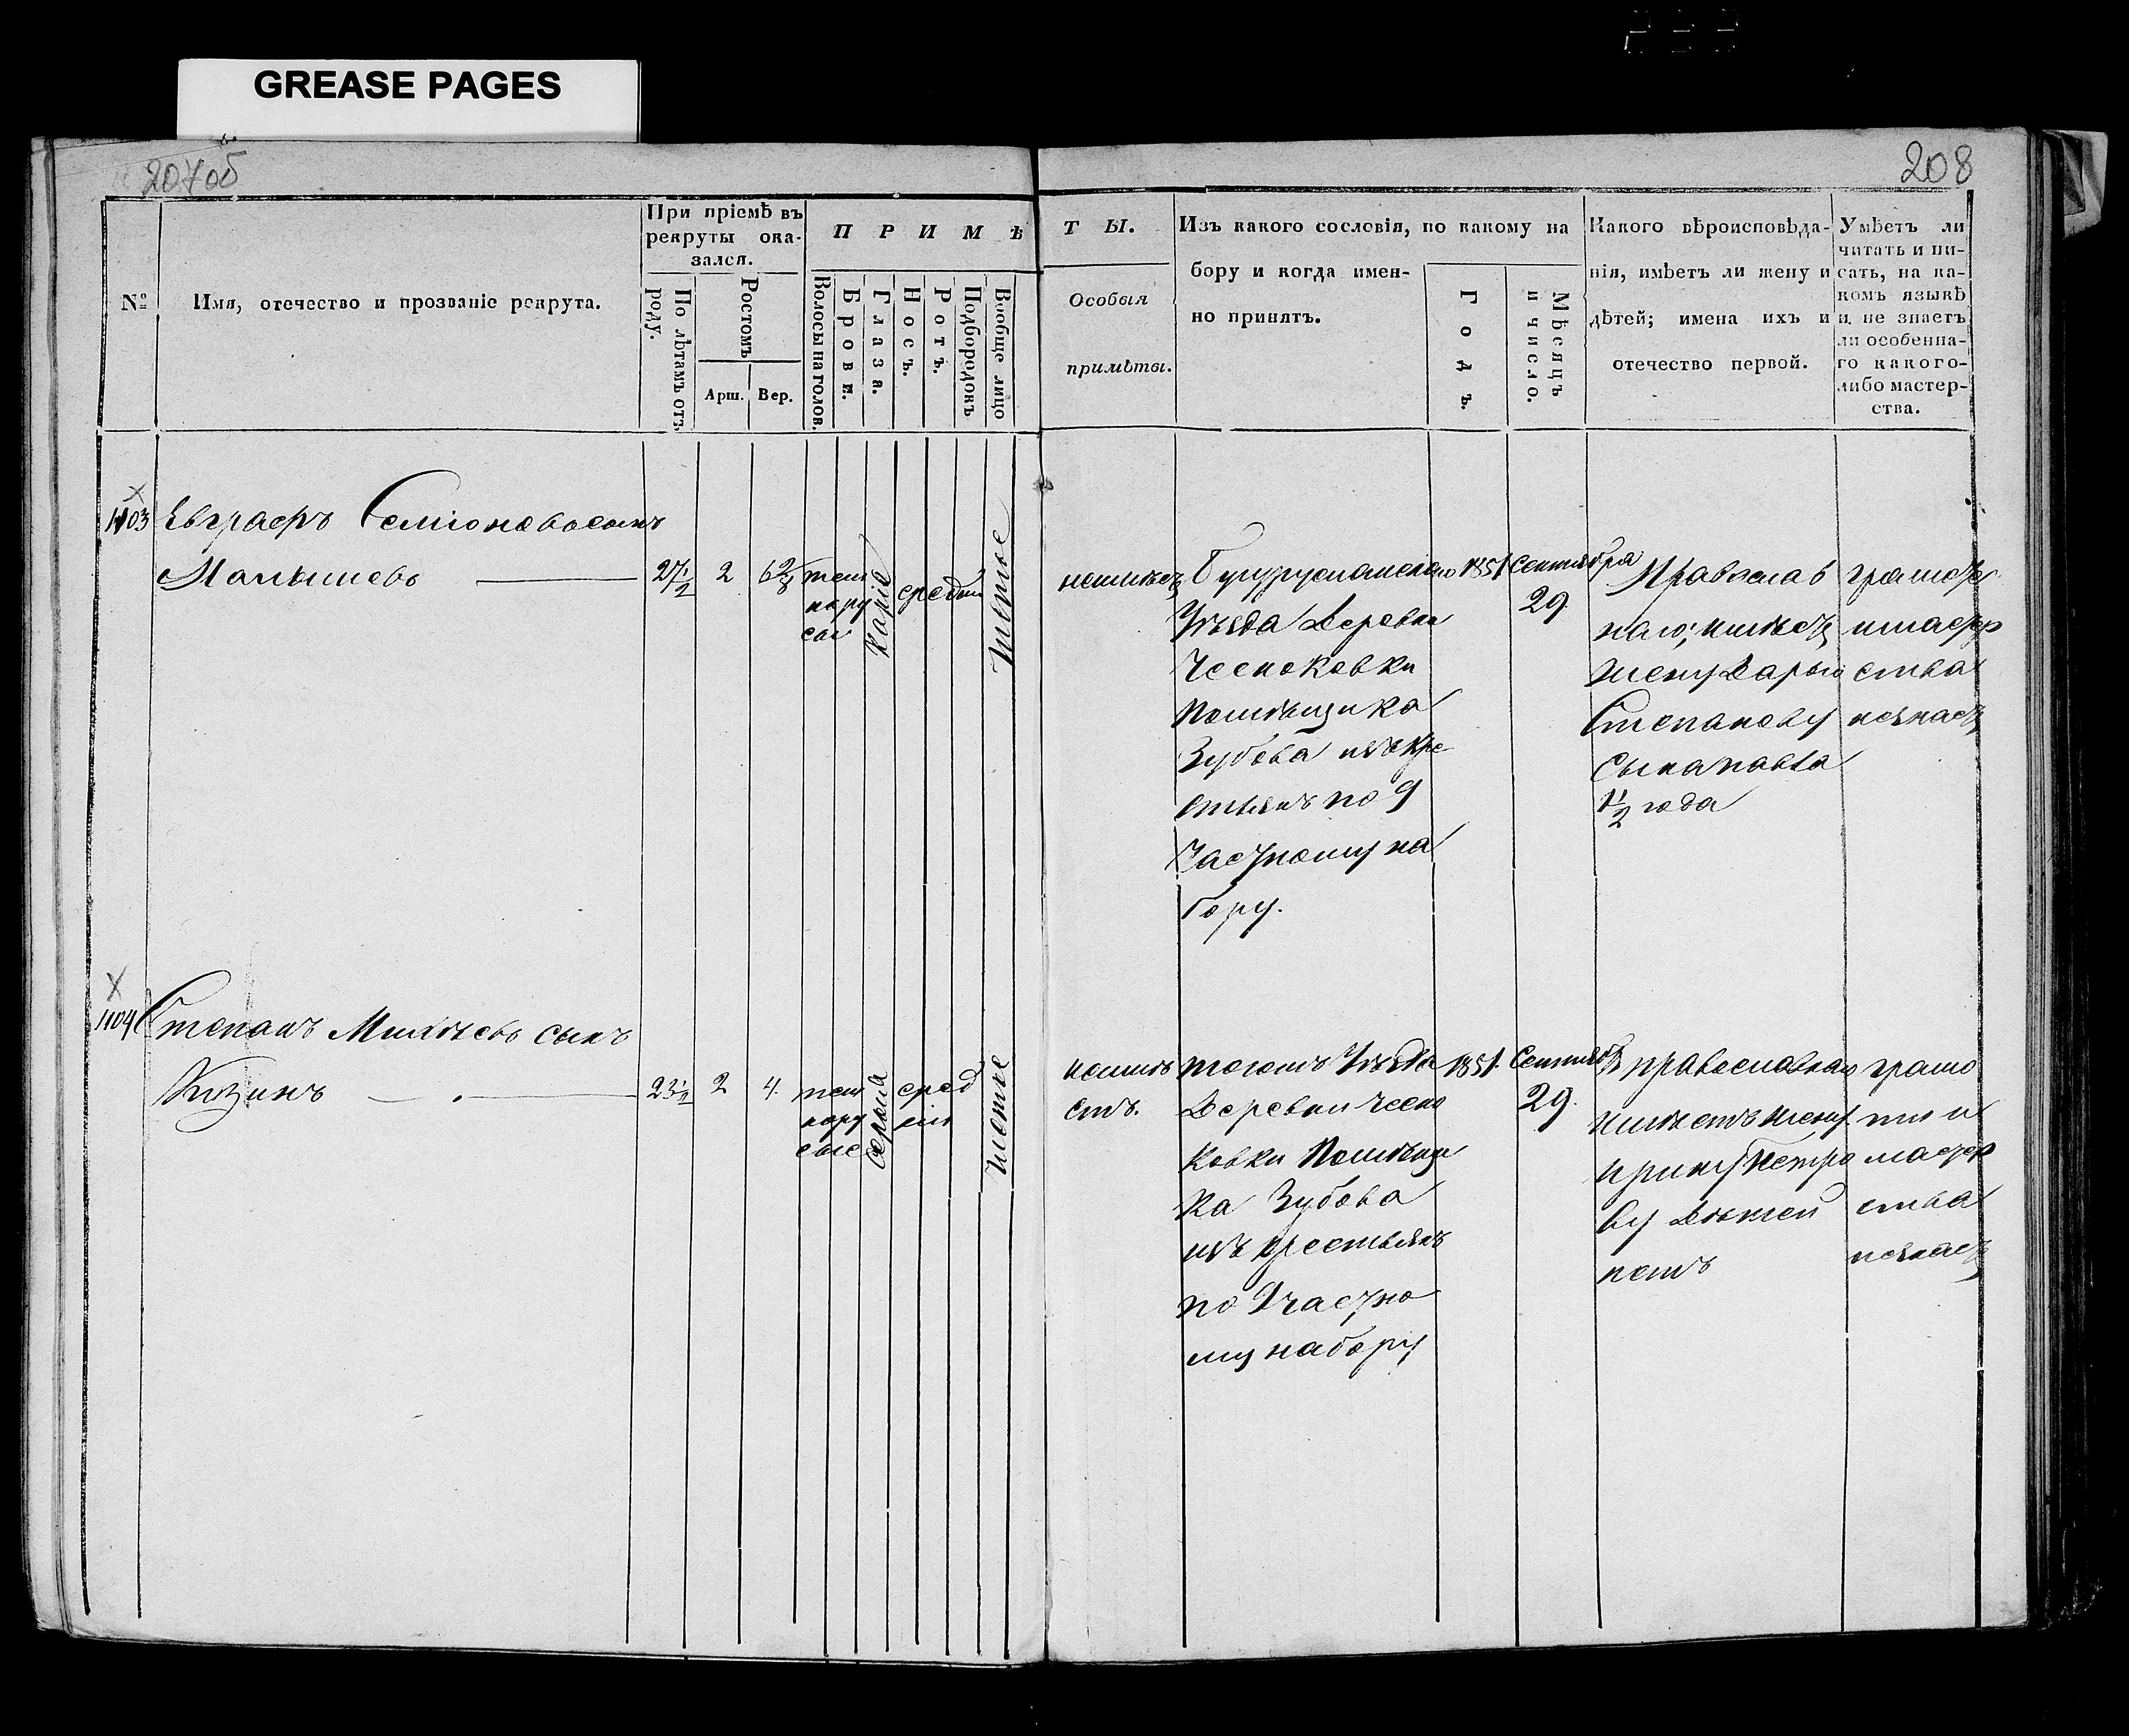 GREASE PAGES
207об
208
№
Имя, отечество и прозваніе рекрута.
При пріемѣ въ
рекруты ока-
зался.
По лѣтамъ отъ
роду.
Ростомъ
Арш.
Вер.
ПРИМѢ
Волосы на голов.
Брови.
Глаза.
Носъ.
Ротъ.
Подбородокъ
Вообще лицо
ТЫ.
Особыя
примѣты.
Изъ какого сословія, по какому на
бору и когда имен-
но принятъ.
Годъ.
Мѣсяцъ
и число.
Какого вѣроисповѣда-
нія, имѣетъ ли жену и
дѣтей; имена ихъ и
отечество первой.
Умѣетъ ли
читать и пи-
сать, на ка-
комъ языкѣ
и не знаетъ
ли особенна-
го какого-
либо мастер-
ства.
1103
Евграфъ Семіоновъ сынъ
Малышевъ
27 1/2
2
6 2/8
тем
нору
сы
каріе
средній
чистое
неимѣетъ
Бугурусланскаго
Уѣзда Деревни
Чесноковки
Помѣщика
Зубова изъ кре
стьянъ по 9
Частному на
бору.
1851
Сентября
29
Православ
наго; имѣетъ
жену Дарью
Степанову
Сына Павла
1 1/2 года
грамоте
и мастер
ства
незнаетъ
1104
Степанъ Михѣевъ сынъ
Кизинъ
23 1/2
2
4.
тем
нору
сые
серыя
сред
ній
чистое
неимѣ
етъ.
тогожъ Уѣзда
Деревни Чесно
ковки Помѣщи
ка Зубова
изъ крестьянъ
по 9 частно
му набору
1851.
Сентября
29.
православнаго
имѣетъ жену
Ирину Петро
ву Дѣтей
нетъ
грамо
ти и
мастер
ства
незнаетъ